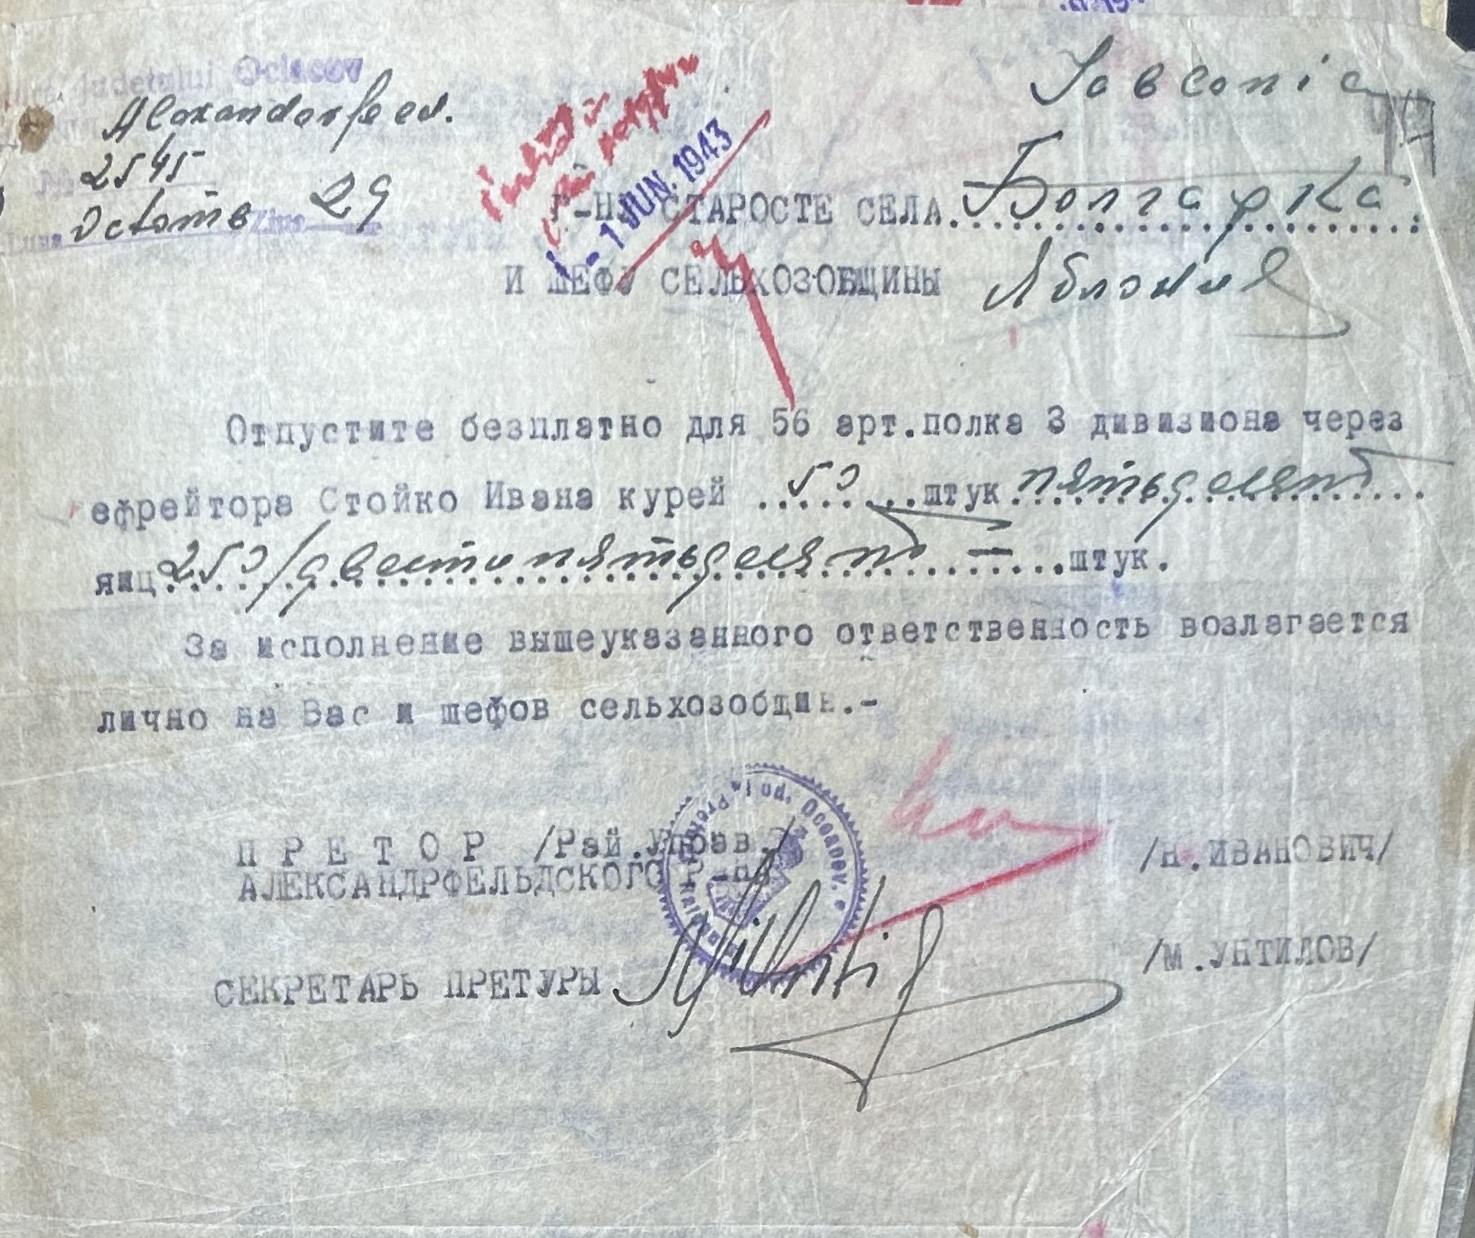 județului Ociacov
Alexandarfeld.
2545
Octomb 29
Ziua
1 JUN. 1943
Iabconia
Г-НУ СТАРОСТЕ СЕЛА Болгарка
И ШЕФУ СЕЛЬХОЗОБЩИНЫ Яблония
Отпустите безплатно для 56 арт.полка 3 дивизиона через
ефрейтора Стойко Ивана курей ..50...штук пятьдесят
яиц 250/двести пятьдесят — ...штук.
За исполнение вышеуказанного ответственность возлагается
лично на Вас и шефов сельхозобщин.-
П Р Е Т О Р /Рай.Управ./ /Н.ИВАНОВИЧ/
АЛЕКСАНДРФЕЛЬДСКОГО Р-на
СЕКРЕТАРЬ ПРЕТУРЫ /М.УНТИЛОВ/